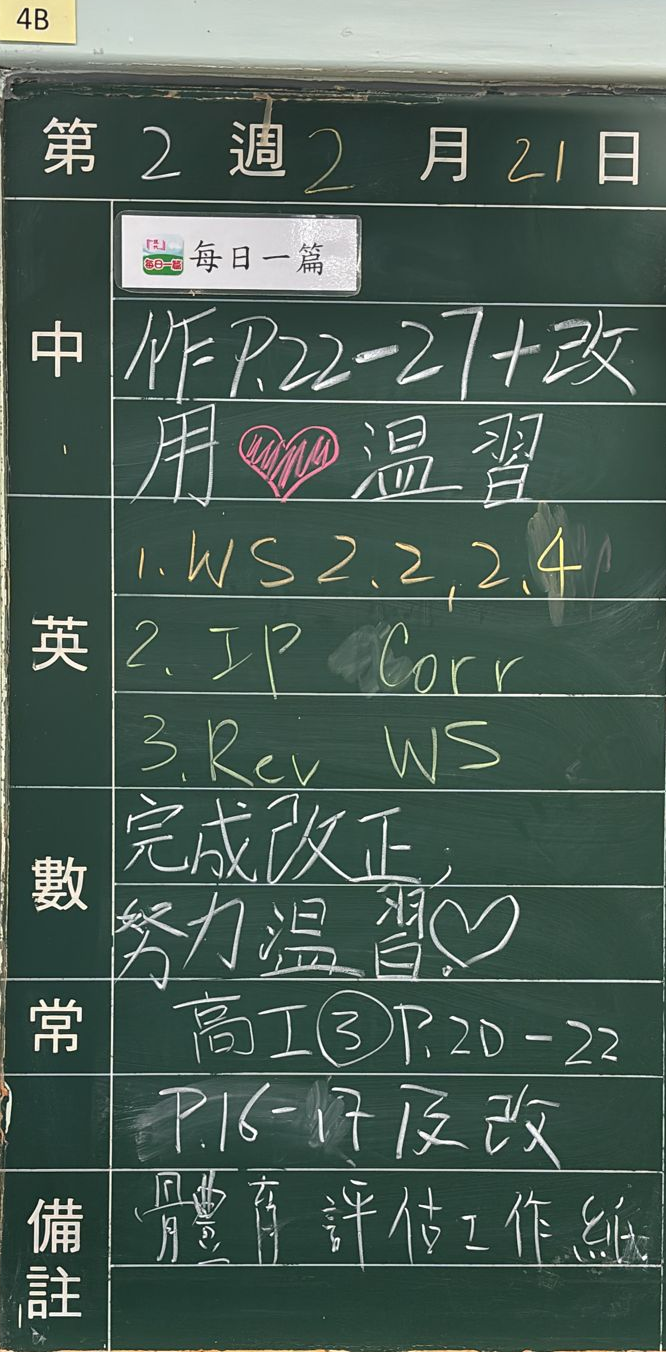 4B
第 2 週 2 月 21 日
中
每日一篇 每日一篇
作P.22-27+改
用 温習
英
1. WS 2.2, 2.4
2. IP Corr
3. Rev WS
數
完成改正,
努力温習
常
高工③P.20-22
P.16-17及改
備註
體育評估工作紙